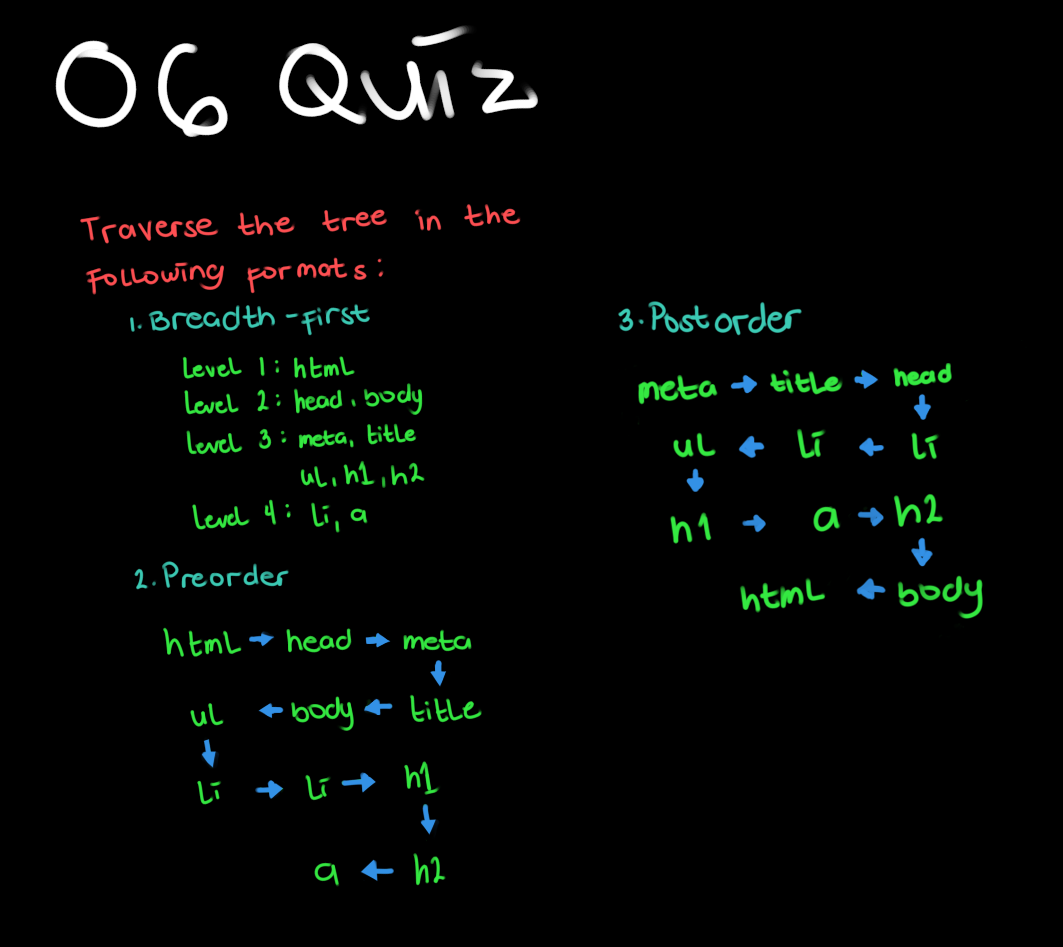 06 Quiz
Traverse the tree in the
following formats:
1. Breadth-first
Level 1: html
Level 2: head, body
Level 3: meta, title
ul, h1, h2
Level 4: li, a
2. Preorder
html → head → meta
↓
ul ← body ← title
↓
li → li → h1
↓
a ← h2
3. Postorder
meta → title → head
↓
ul ← li ← li
↓
h1 → a → h2
↓
html ← body